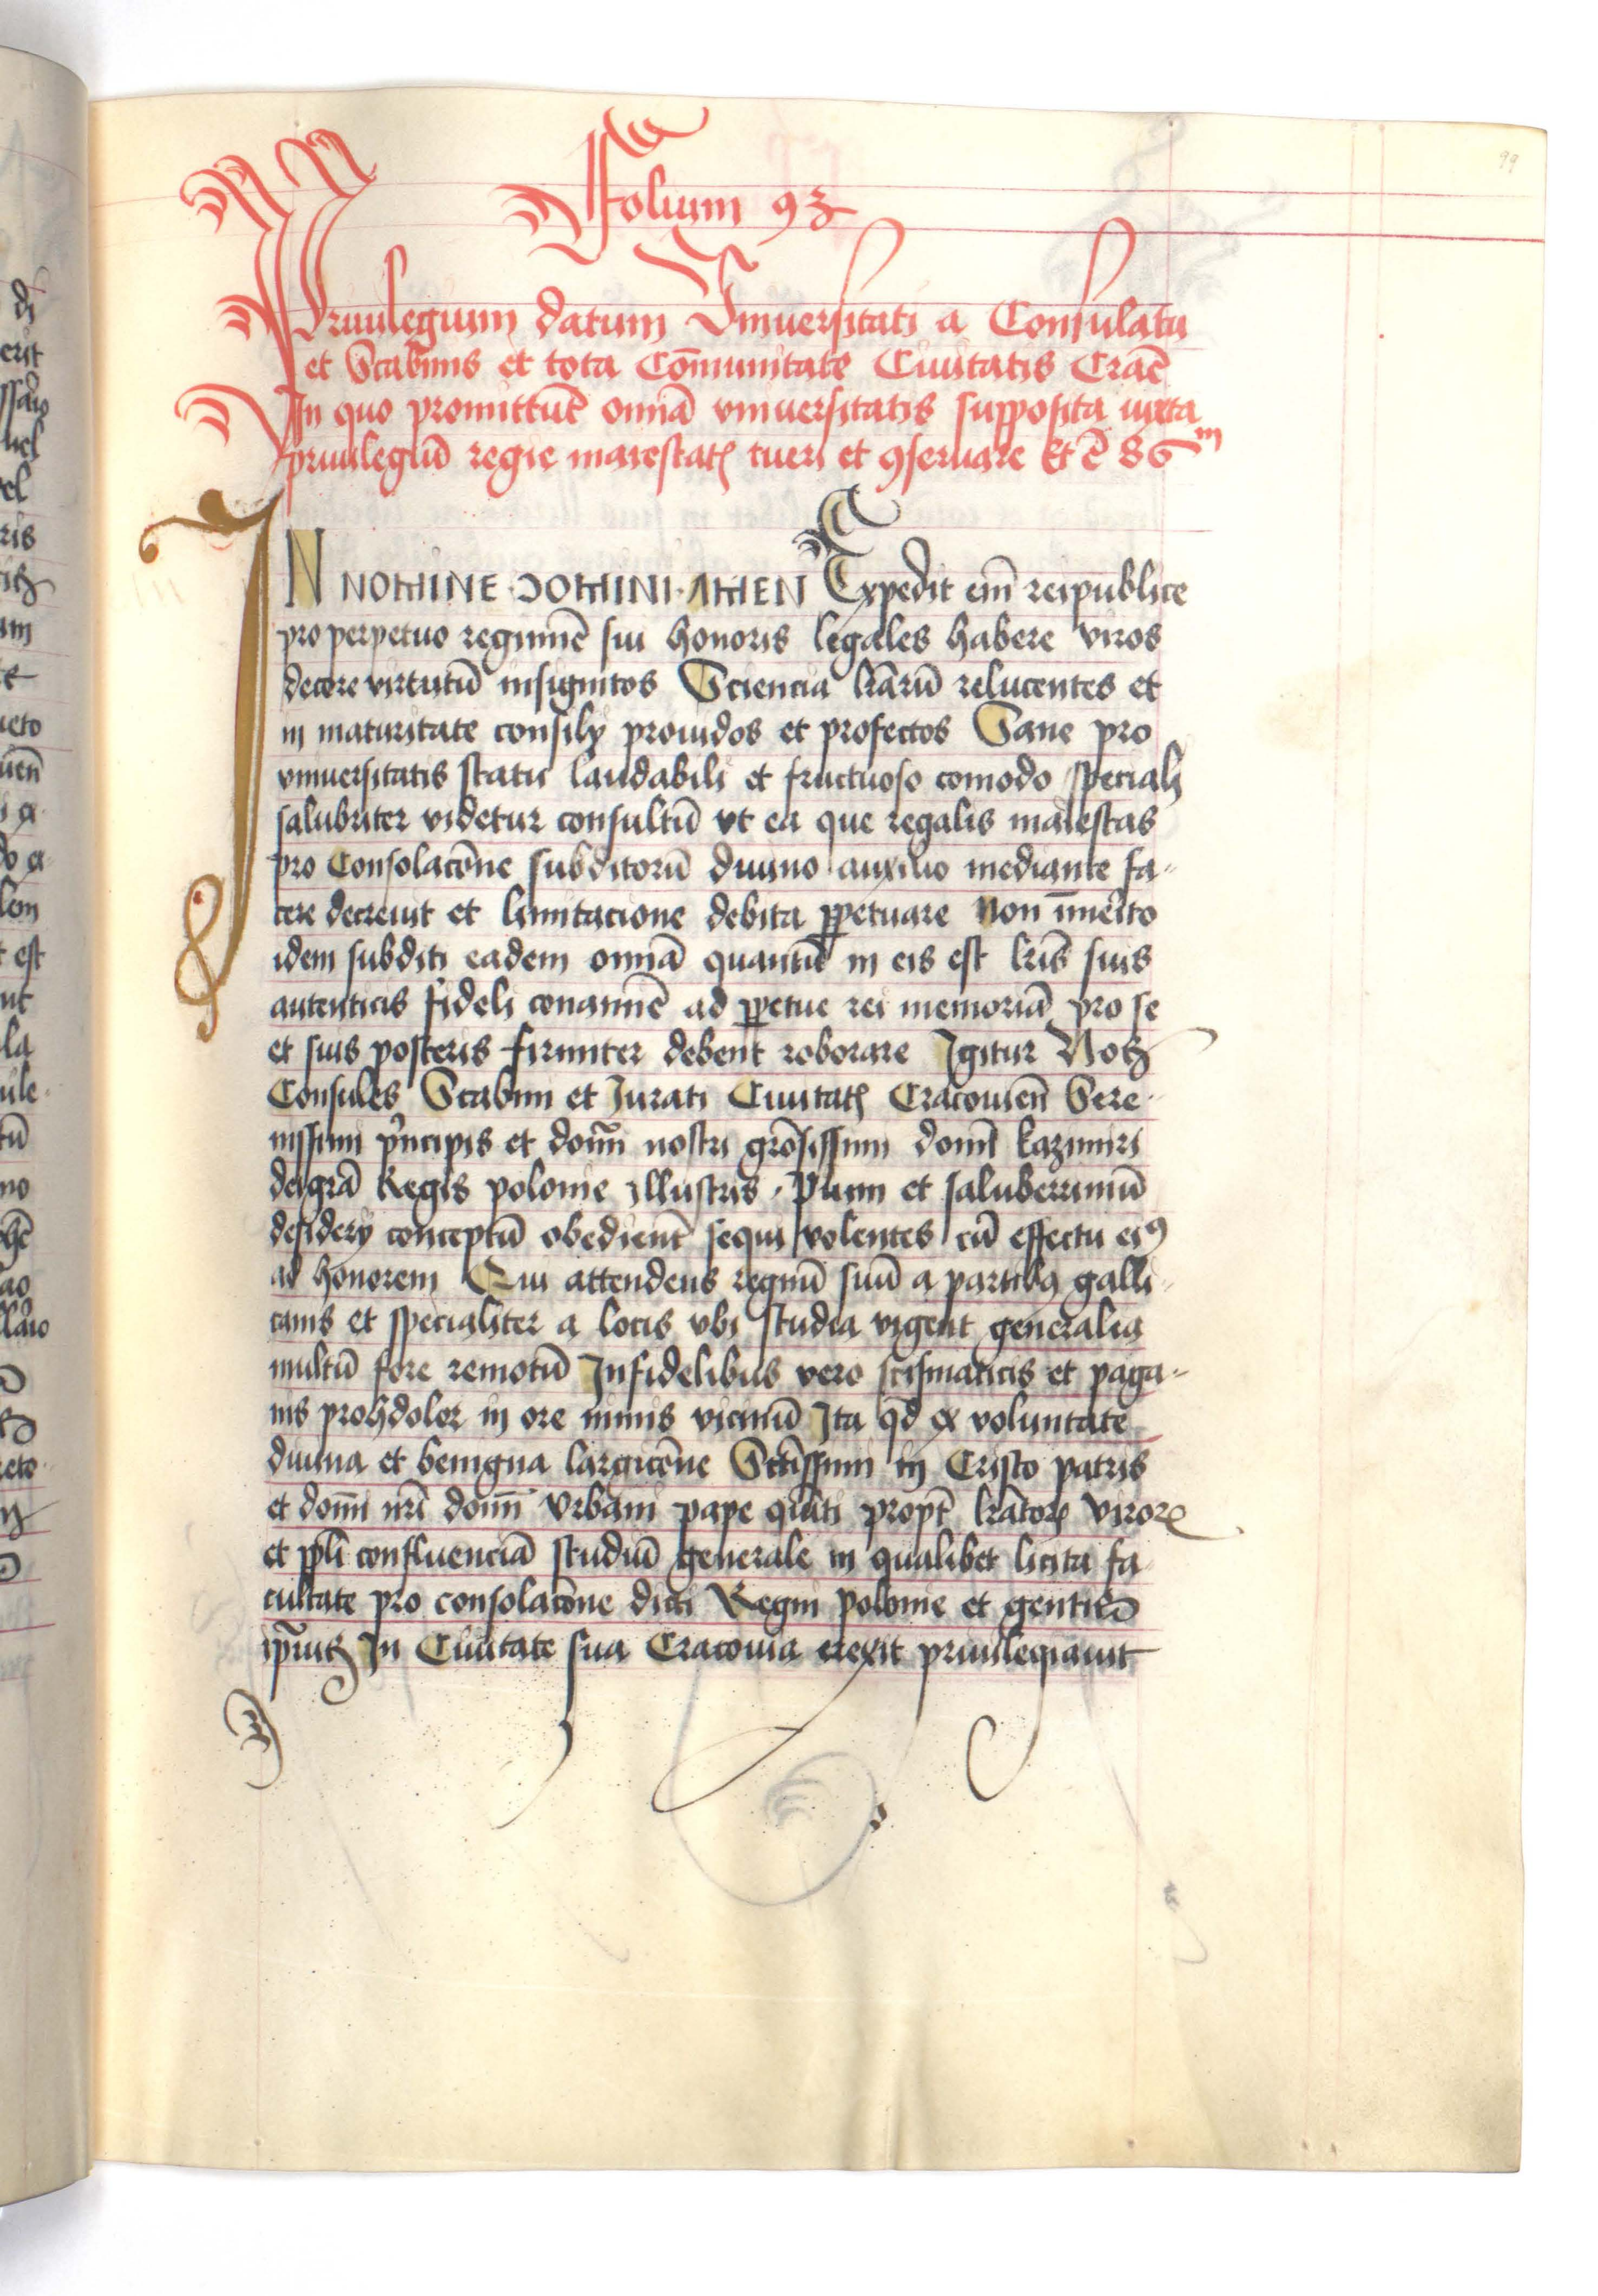 99
Folium 93
Priuilegium datum Vniuersitati a Consulatu
et Scabinis et tota Cōmunitate Ciuitatis Craē
In quo promittūt omīa vniuersitatis supposita iuxta
priuilegiū regie maiestatꝭ tueri et ꝯseruare Et ē 86m
IN NOMINE · DOMINI · AMEN Expedit em̄ reipublice
pro perpetuo regimīe sui honoris legales habere viros
decore virtutū insignitos Sciencia lrārū relucentes et
in maturitate consilij prouidos et profectos Sane pro
vniuersitatis statu laudabili et fructuoso comodo speciali
salubriter videtur consultū vt ea que regalis maiestas
pro Consolacōne subditorū diuino auxilio mediante fa-
cere decreuit et limitacione debita ꝑpetuare Non īmerito
idem subditi eadem omīa quantū in eis est lrīs suis
autenticis fideli conamīe ad ꝑpetue rei memoriā pro se
et suis posteris firmiter debent roborare Igitur Nos
Consules Scabini et Jurati Ciuitatꝭ Cracouien̄ Sere-
nissimi p'ncipis et domī nostri grōsissimi domī kazimiri
dei grā Regis polonie illustris · Pium et saluberrimū
desiderij conceptū obedient' sequi volentes cū effectu eiꝰ
ad honorem Qui attendens regnū suū a partibꝫ galli-
canis et specialiter a locis vbi studia vigent generalia
multū fore remotū Infidelibus vero scismaticis et paga-
nis prohdolor in ore nimis vicinū Ita qd̄ ex voluntate
diuina et benigna largicōne Sctīssimi in Cristo patris
et domī nrī domī Vrbani pape quīti propt' lrātoꝝ viroꝝ
et ppl̄i confluenciā studiū generale in qualibet licita fa-
cultate pro consolacōne dicti Regni polonie et gentiū
ip̄arū In Ciuitate sua Cracouia erexit priuilegiauit